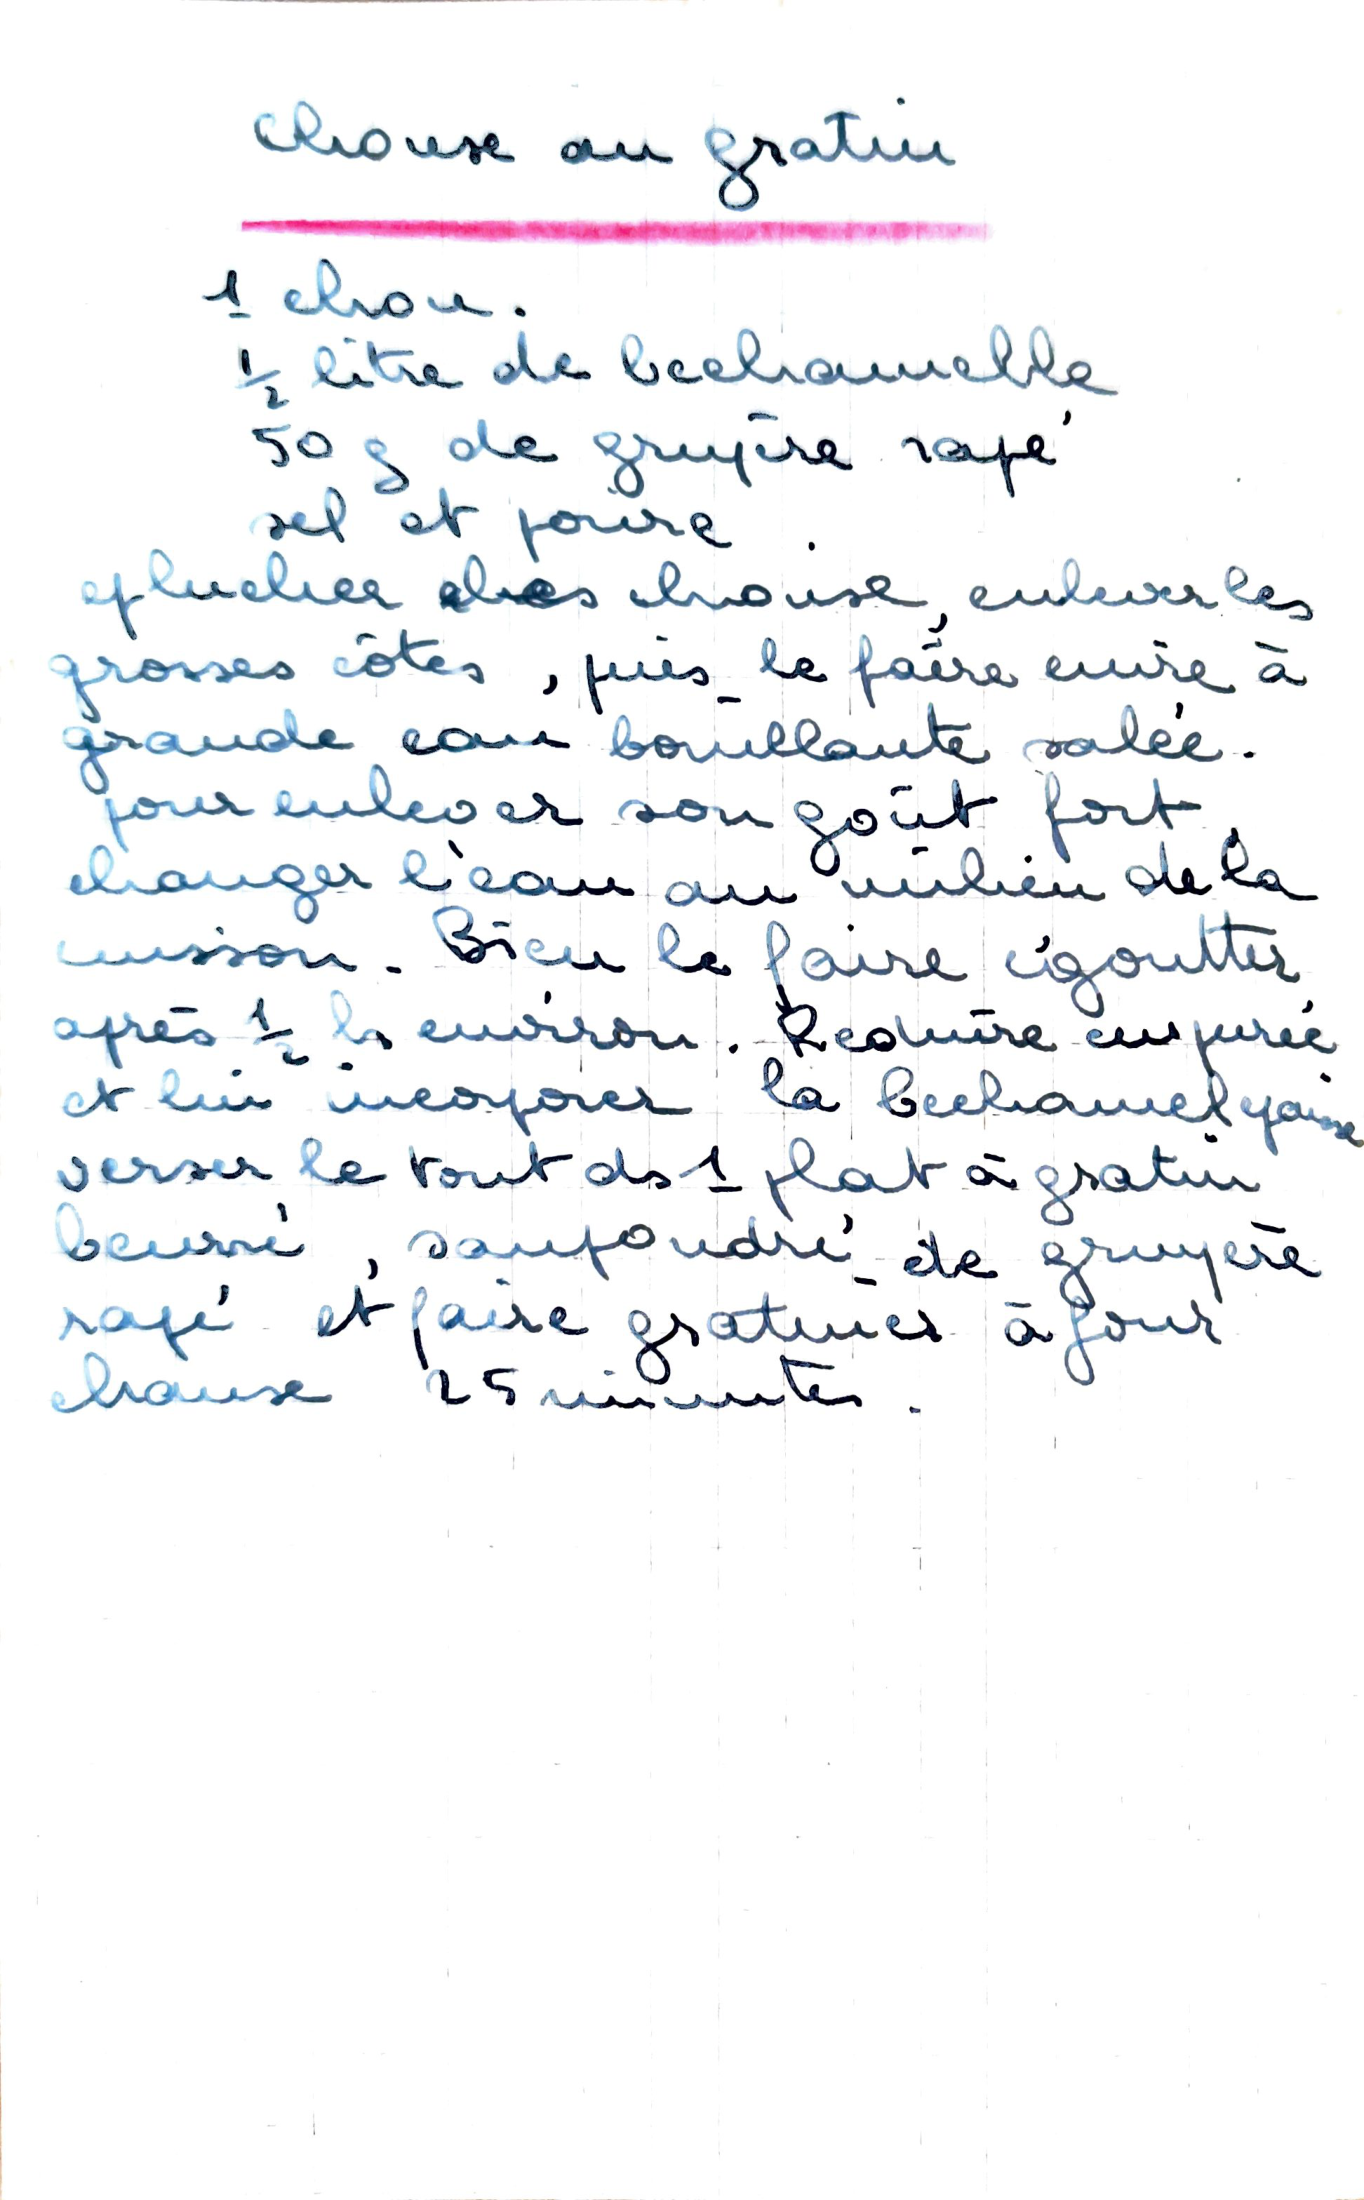 Choux au gratin
1 chou.
1/2 litre de bechamelle
50 g de gruyère rapé
sel et poivre
eplucher les choux, enlever les
grosses côtes, puis le faire cuire à
grande eau bouillante salée.
pour enlever son goût fort,
changer l'eau au milieu de la
cuisson. Bien le faire égoutter
après 1/2 h environ. Reduire en purée
et lui incorporer la bechamel épaisse
verser le tout ds 1 plat à gratin
beurré, saupoudré de gruyère
rapé et faire gratiner à four
chaux 25 minutes.